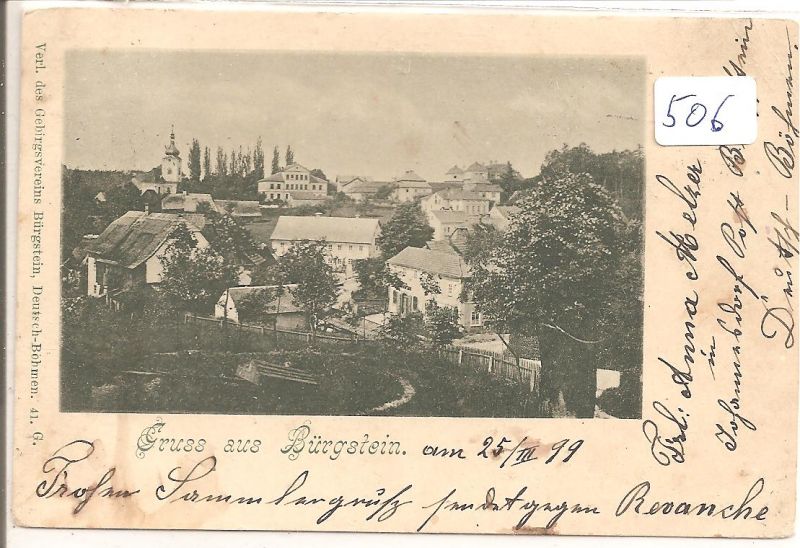 Verl. des Gebirgsvereins Bürgstein, Deutsch-Böhmen. 41. G.
506
Gruss aus Bürgstein. am 25/III 99
Frohen Sammlergruß sendet gegen Revanche
Frl. Anna Melzer
in
Johannesdorf Post
Deutsch-Böhmen.